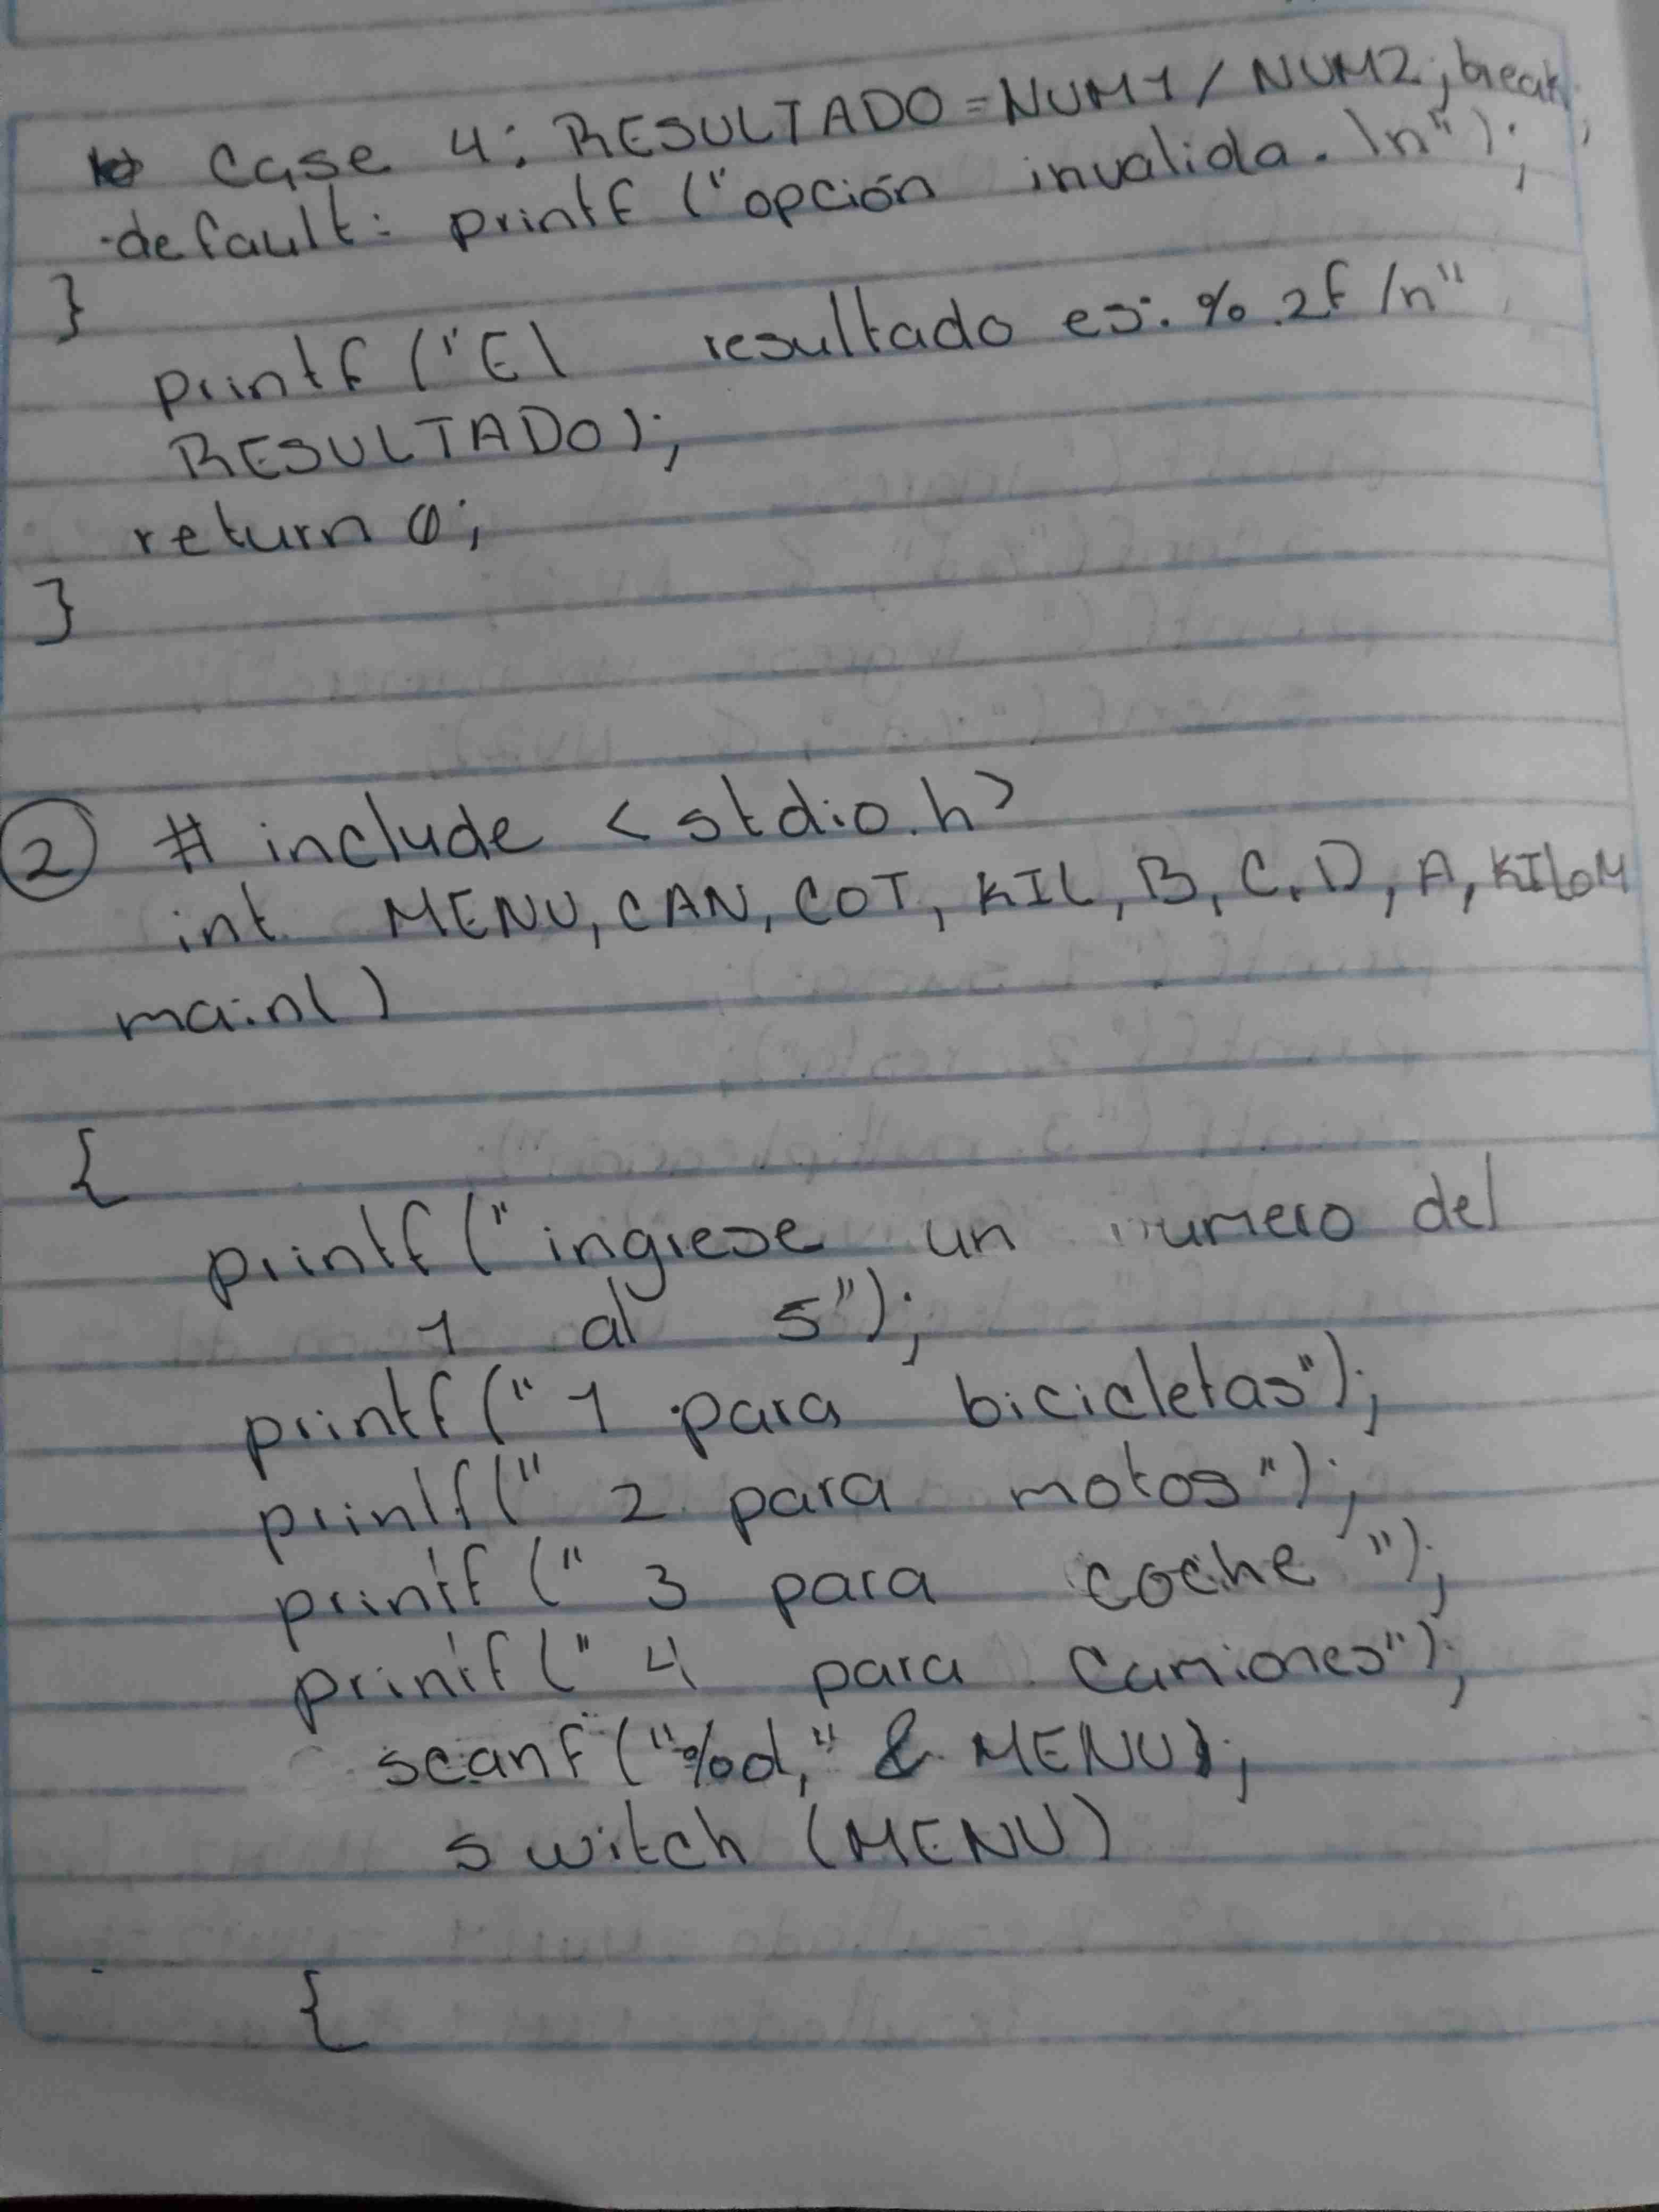 Case 4: RESULTADO = NUM1 / NUM2; break;
default: printf ("opción invalida. \n");
}
printf ("El resultado es: % .2f /n"
RESULTADO);
return 0;
}
2 # include < stdio.h >
int MENU, CAN, COT, KIL, B, C, D, A, KILOM
main()
{
printf (" ingrese un numero del
1 al 5");
printf (" 1 para bicicletas");
printf (" 2 para motos");
printf (" 3 para coche ");
printf (" 4 para Camiones");
scanf ("%d," & MENU);
switch (MENU)
{